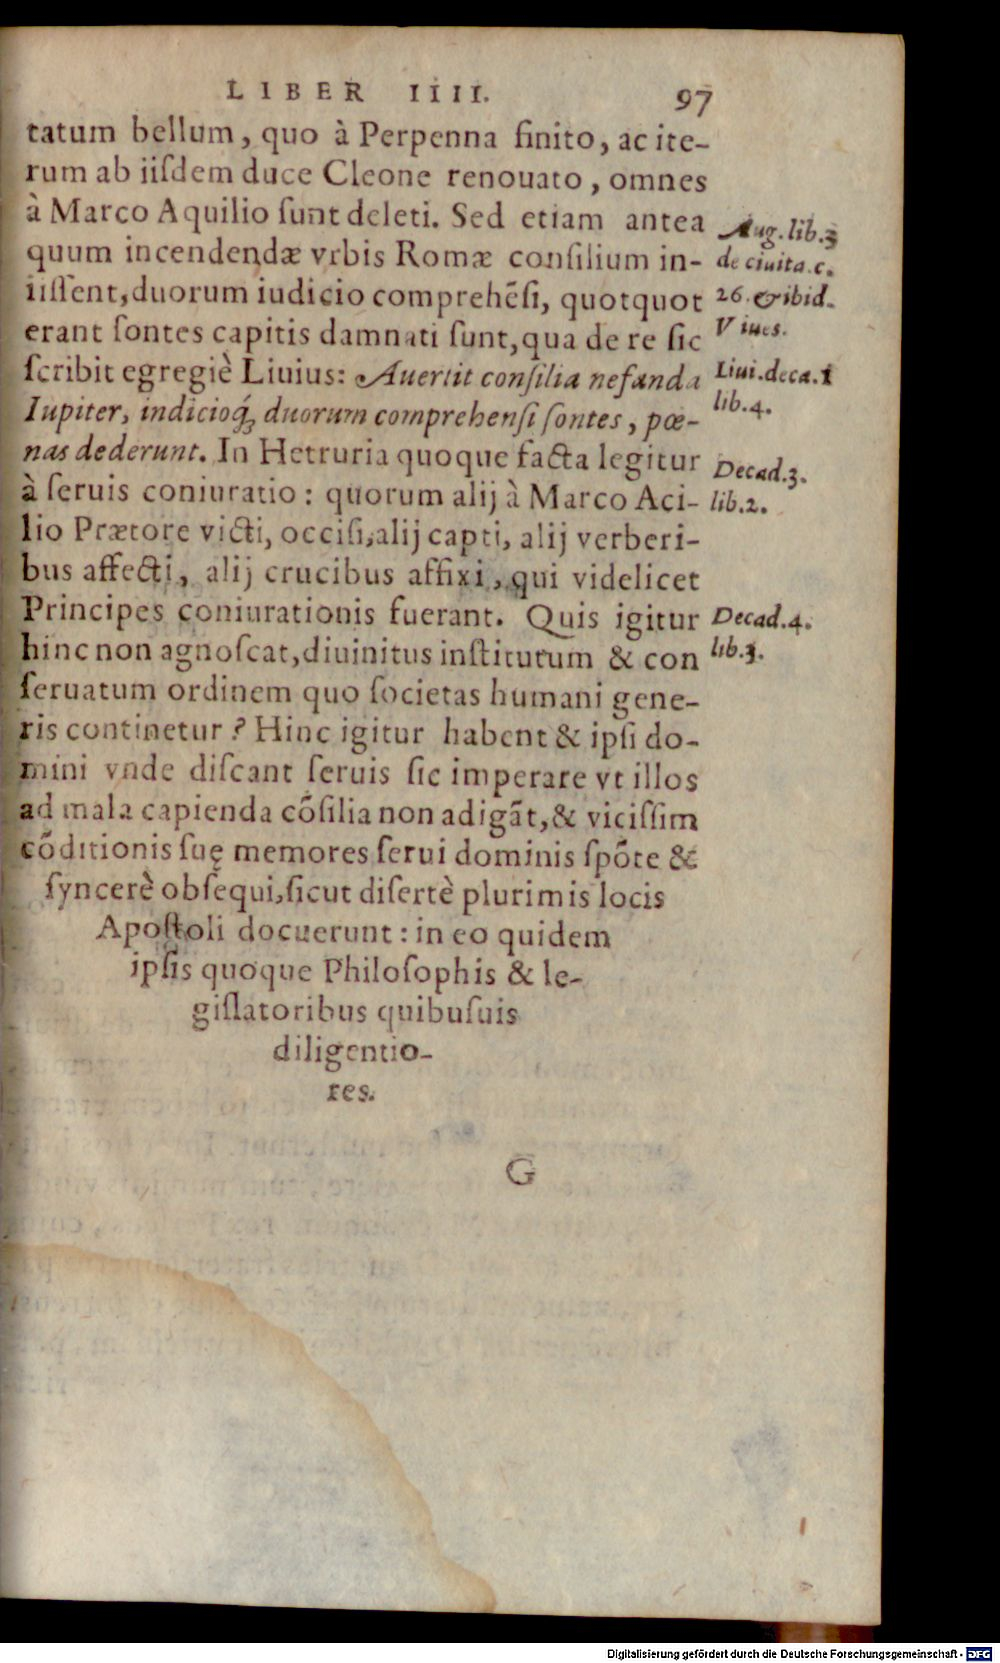 LIBER IIII. 97
tatum bellum, quo à Perpenna finito, ac ite-
rum ab iiſdem duce Cleone renouato, omnes
à Marco Aquilio ſunt deleti. Sed etiam antea
quum incendendæ vrbis Romæ conſilium in-
iiſſent, duorum iudicio comprehēſi, quotquot
erant ſontes capitis damnati ſunt, qua de re ſic
ſcribit egregiè Liuius: Auertit conſilia nefanda
Iupiter, indicioq́ꝫ duorum comprehenſi ſontes, pœ-
nas dederunt. In Hetruria quoque facta legitur
à ſeruis coniuratio: quorum alij à Marco Aci-
lio Prætore victi, occiſi, alij capti, alij verberi-
bus affecti, alij crucibus affixi, qui videlicet
Principes coniurationis fuerant. Quis igitur
hinc non agnoſcat, diuinitus inſtitutum & con
ſeruatum ordinem quo ſocietas humani gene-
ris continetur? Hinc igitur habent & ipſi do-
mini vnde diſcant ſeruis ſic imperare vt illos
ad mala capienda cōſilia non adigāt, & viciſſim
cōditionis ſuę memores ſerui dominis ſpōte &
ſyncerè obſequi, ſicut diſertè plurimis locis
Apoſtoli docuerunt: in eo quidem
ipſis quoque Philoſophis & le-
giſlatoribus quibuſuis
diligentio-
res.
G
Aug. lib. 3
de ciuita. c.
26. & ibid.
Viues.
Liui. deca. 1
lib. 4.
Decad. 3.
lib. 2.
Decad. 4.
lib. 3.
Digitalisierung gefördert durch die Deutsche Forschungsgemeinschaft - DFG